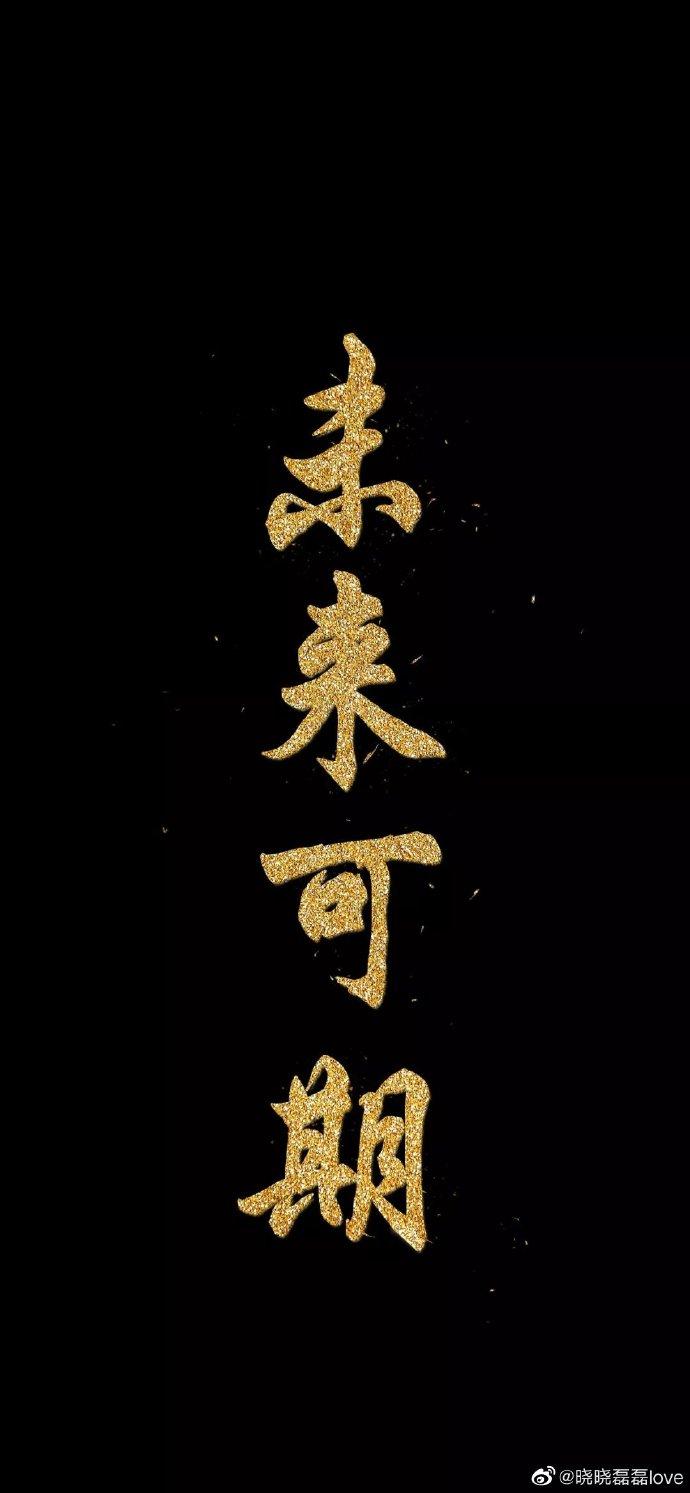 未来可期
@晓晓磊磊love